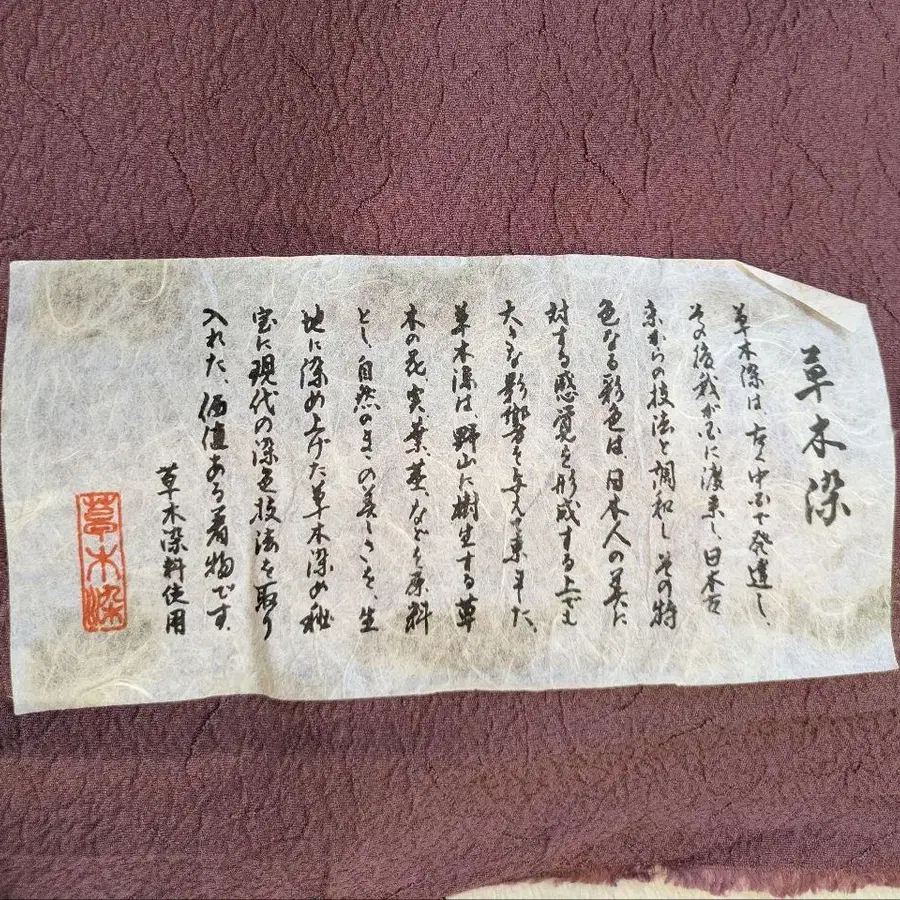 草木染
草木染は、古く中国で発達し、
その後我が国に渡来し、日本古
来からの技法と調和し その特
色なる彩色は 日本人の美に
対する感覚を形成する上でも
大きな影響を与えて来ました。
草木染は、野山に樹生する草
木の花、実、葉、茎、などを原料
とし、自然のまゝの美しさを、生
地に染め上げた草木染の秘
宝に現代の染色技法を取り
入れた、価値ある着物です。
草木染料使用
草木染